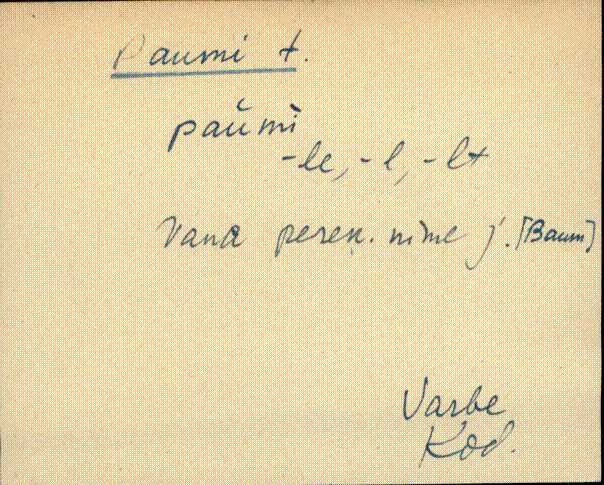 Paumi t.
paŭmì
-le, -l, -lt
Vana peren. nime j. [Baum]
Varbe
Kod.